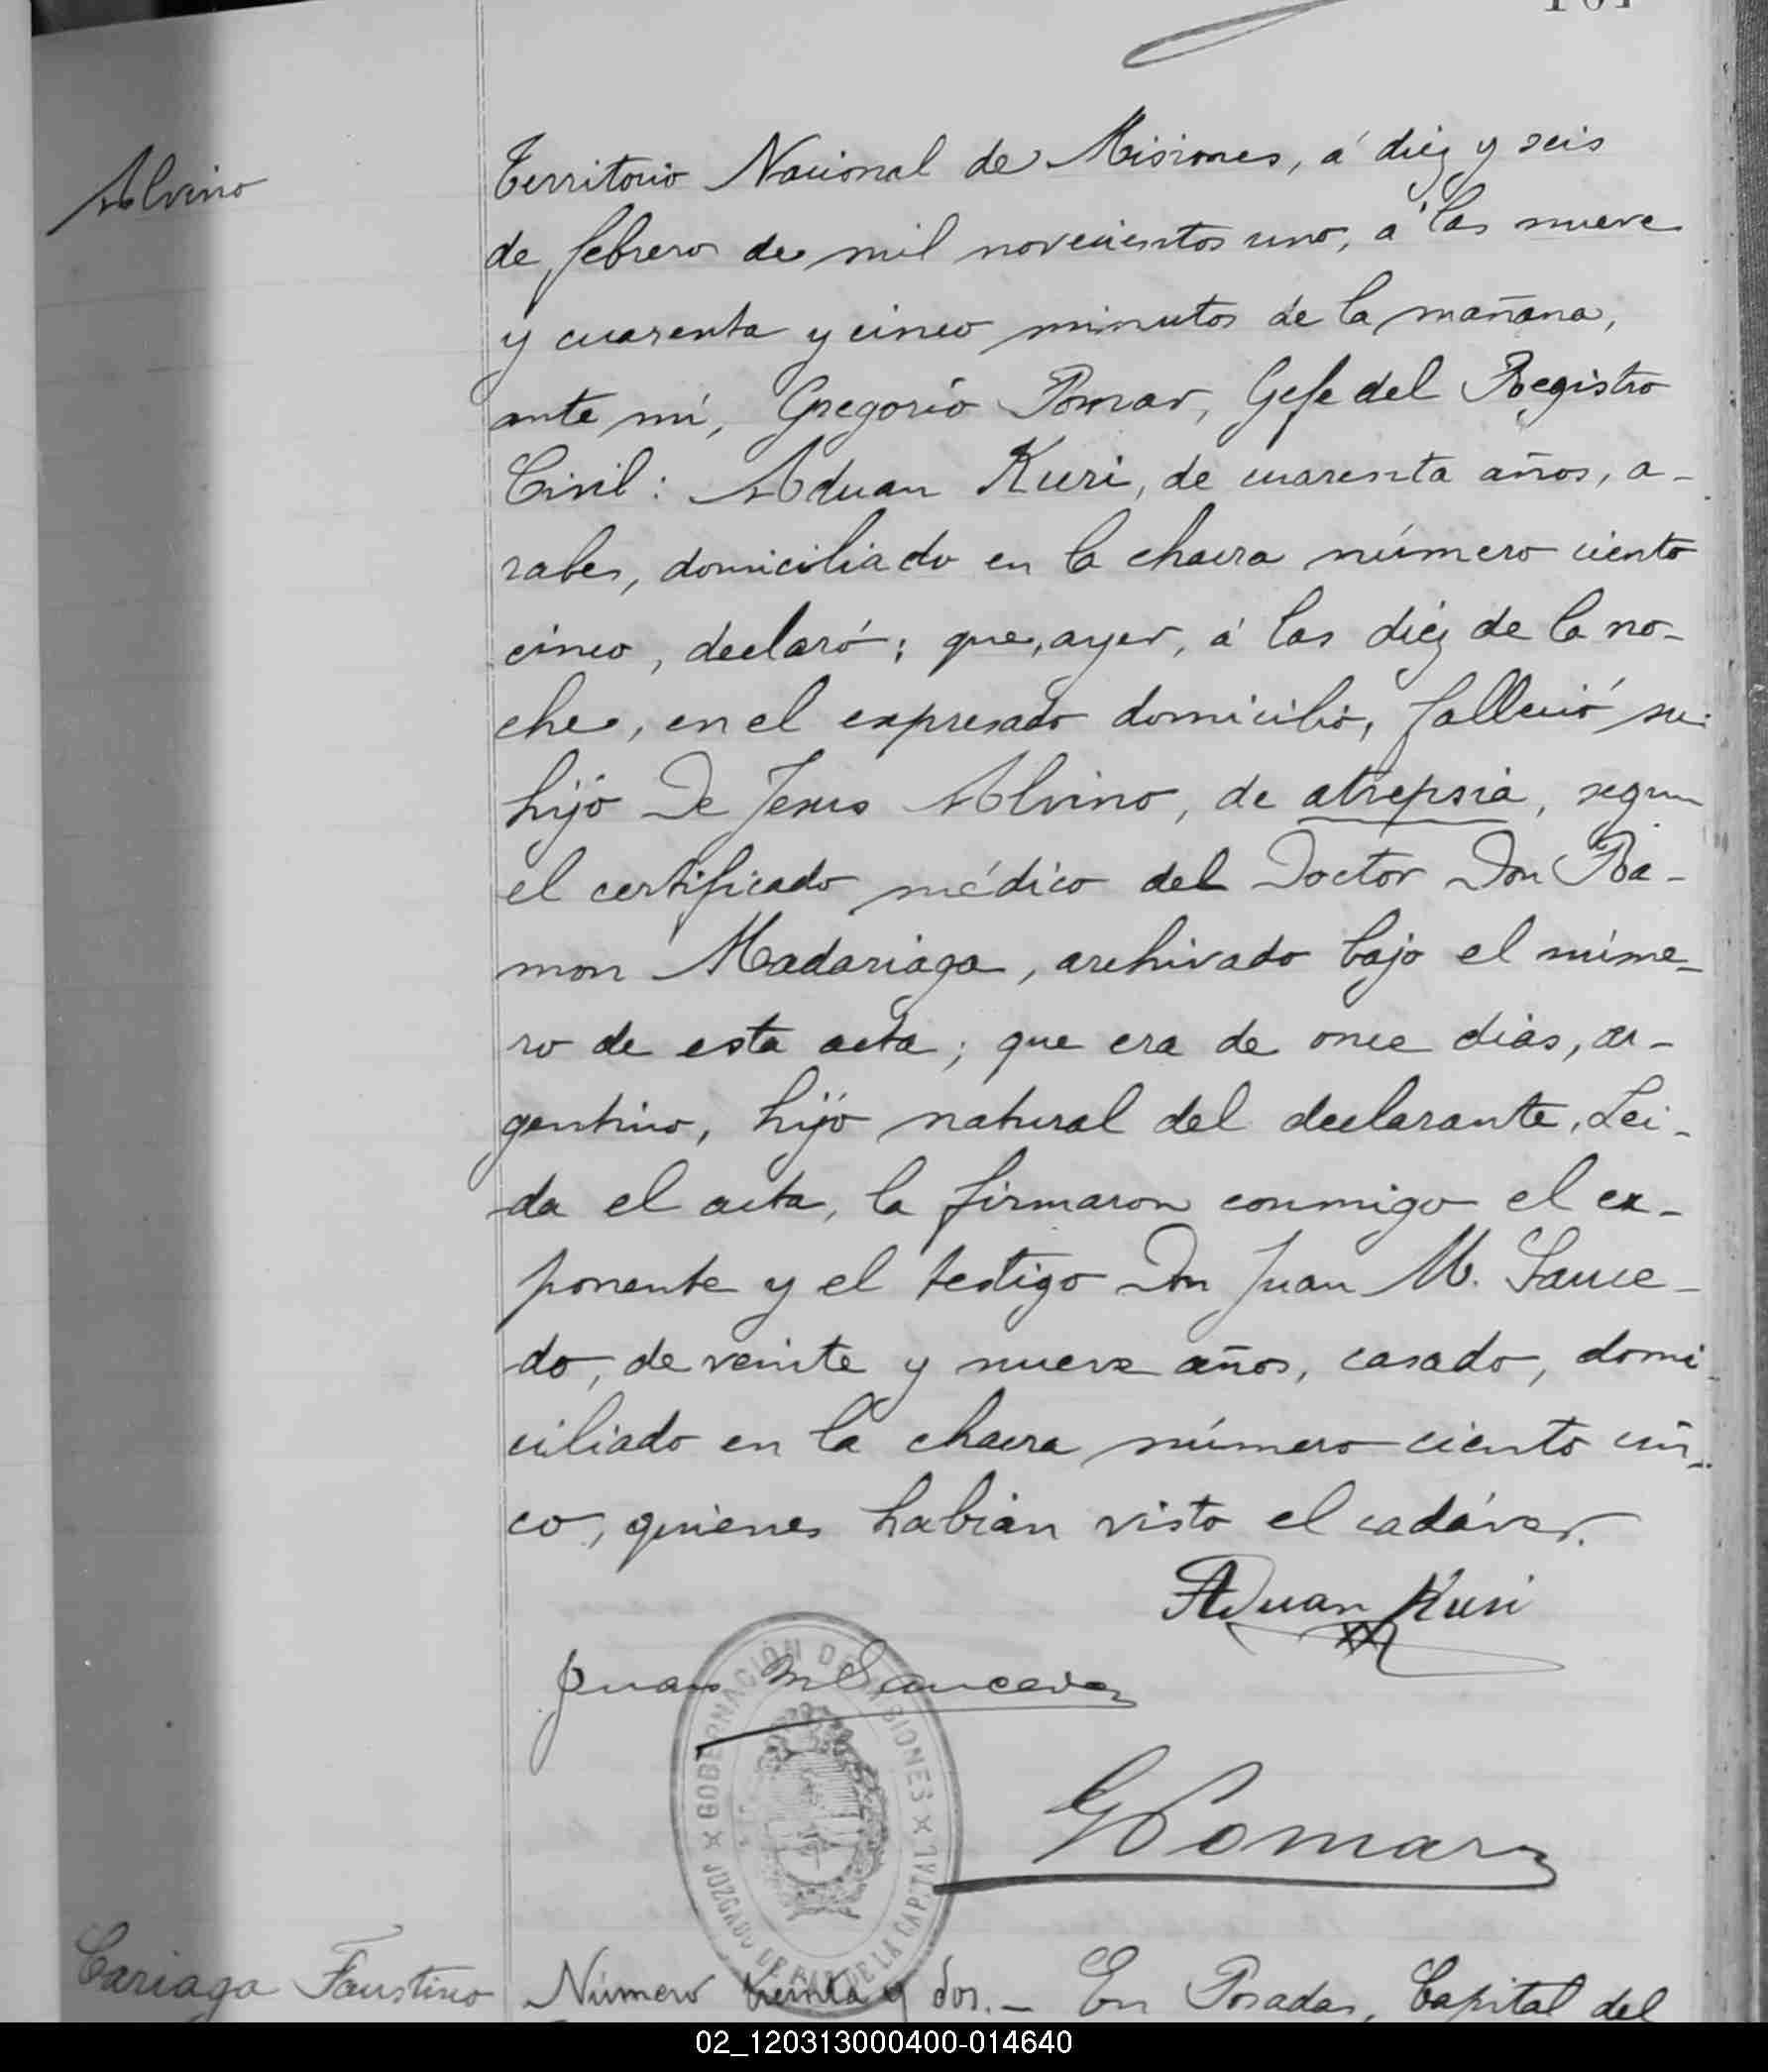 Alvino
Territorio Nacional de Misiones, á diez y seis
de febrero de mil novecientos uno, á las nueve
y cuarenta y cinco minutos de la mañana,
ante mí, Gregorio Pomar, Gefe del Registro
Civil: Aduan Kuri, de cuarenta años, a-
rabe, domiciliado en la chacra número ciento
cinco, declaró; que, ayer, á las diez de la no-
che, en el expresado domicilio, falleció su
hijo De Jesus Alvino, de atrepsia, segun
el certificado médico del Doctor Don Ra-
mon Madariaga, archivado bajo el núme-
ro de esta acta; que era de once dias, ar-
gentino, hijo natural del declarante. Lei-
da el acta, la firmaron conmigo el ex-
ponente y el testigo Don Juan M. Sauce-
do, de veinte y nueve años, casado, domi-
ciliado en la chacra número ciento cin-
co, quienes habian visto el cadáver.
Aduan Kuri
Juan M Saucedo
GOBERNACIÓN DE MISIONES x JUZGADO DE PAZ DE LA CAPITAL x
G Pomar
Cariaga Faustino
Número treinta y dos. — En Posadas, Capital del
02_120313000400-014640